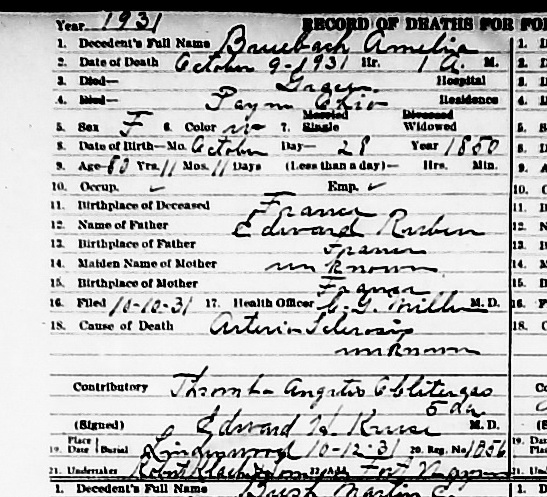 Year 1931 RECORD OF DEATHS FOR FO
1. Decedent's Full Name Bruebach Amelia
2. Date of Death October 9-1931 Hr. 1 A. M.
3. Died— Grace Hospital
4. Died— Payne Ohio Residence
5. Sex F 6. Color w 7. Married Single Divorced Widowed
8. Date of Birth—Mo. October Day— 28 Year 1850
9. Age 80 Yrs. 11 Mos. 11 Days (Less than a day)— Hrs. Min.
10. Occup. ✓ Emp. ✓
11. Birthplace of Deceased France
12. Name of Father Edward Rubin
13. Birthplace of Father France
14. Maiden Name of Mother unknown
15. Birthplace of Mother France
16. Filed 10-10-31 17. Health Officer Miller M. D.
18. Cause of Death Arterio Sclerosis
unknown
Contributory Thrombo Angitis Obliterans
5 da
(Signed) Edward H. Kruse M. D.
19. Place Date Burial Lindenwood 10-12-31 20. Reg. No. 1856
21. Undertaker Fort Wayne
1. Decedent's Full Name Martin